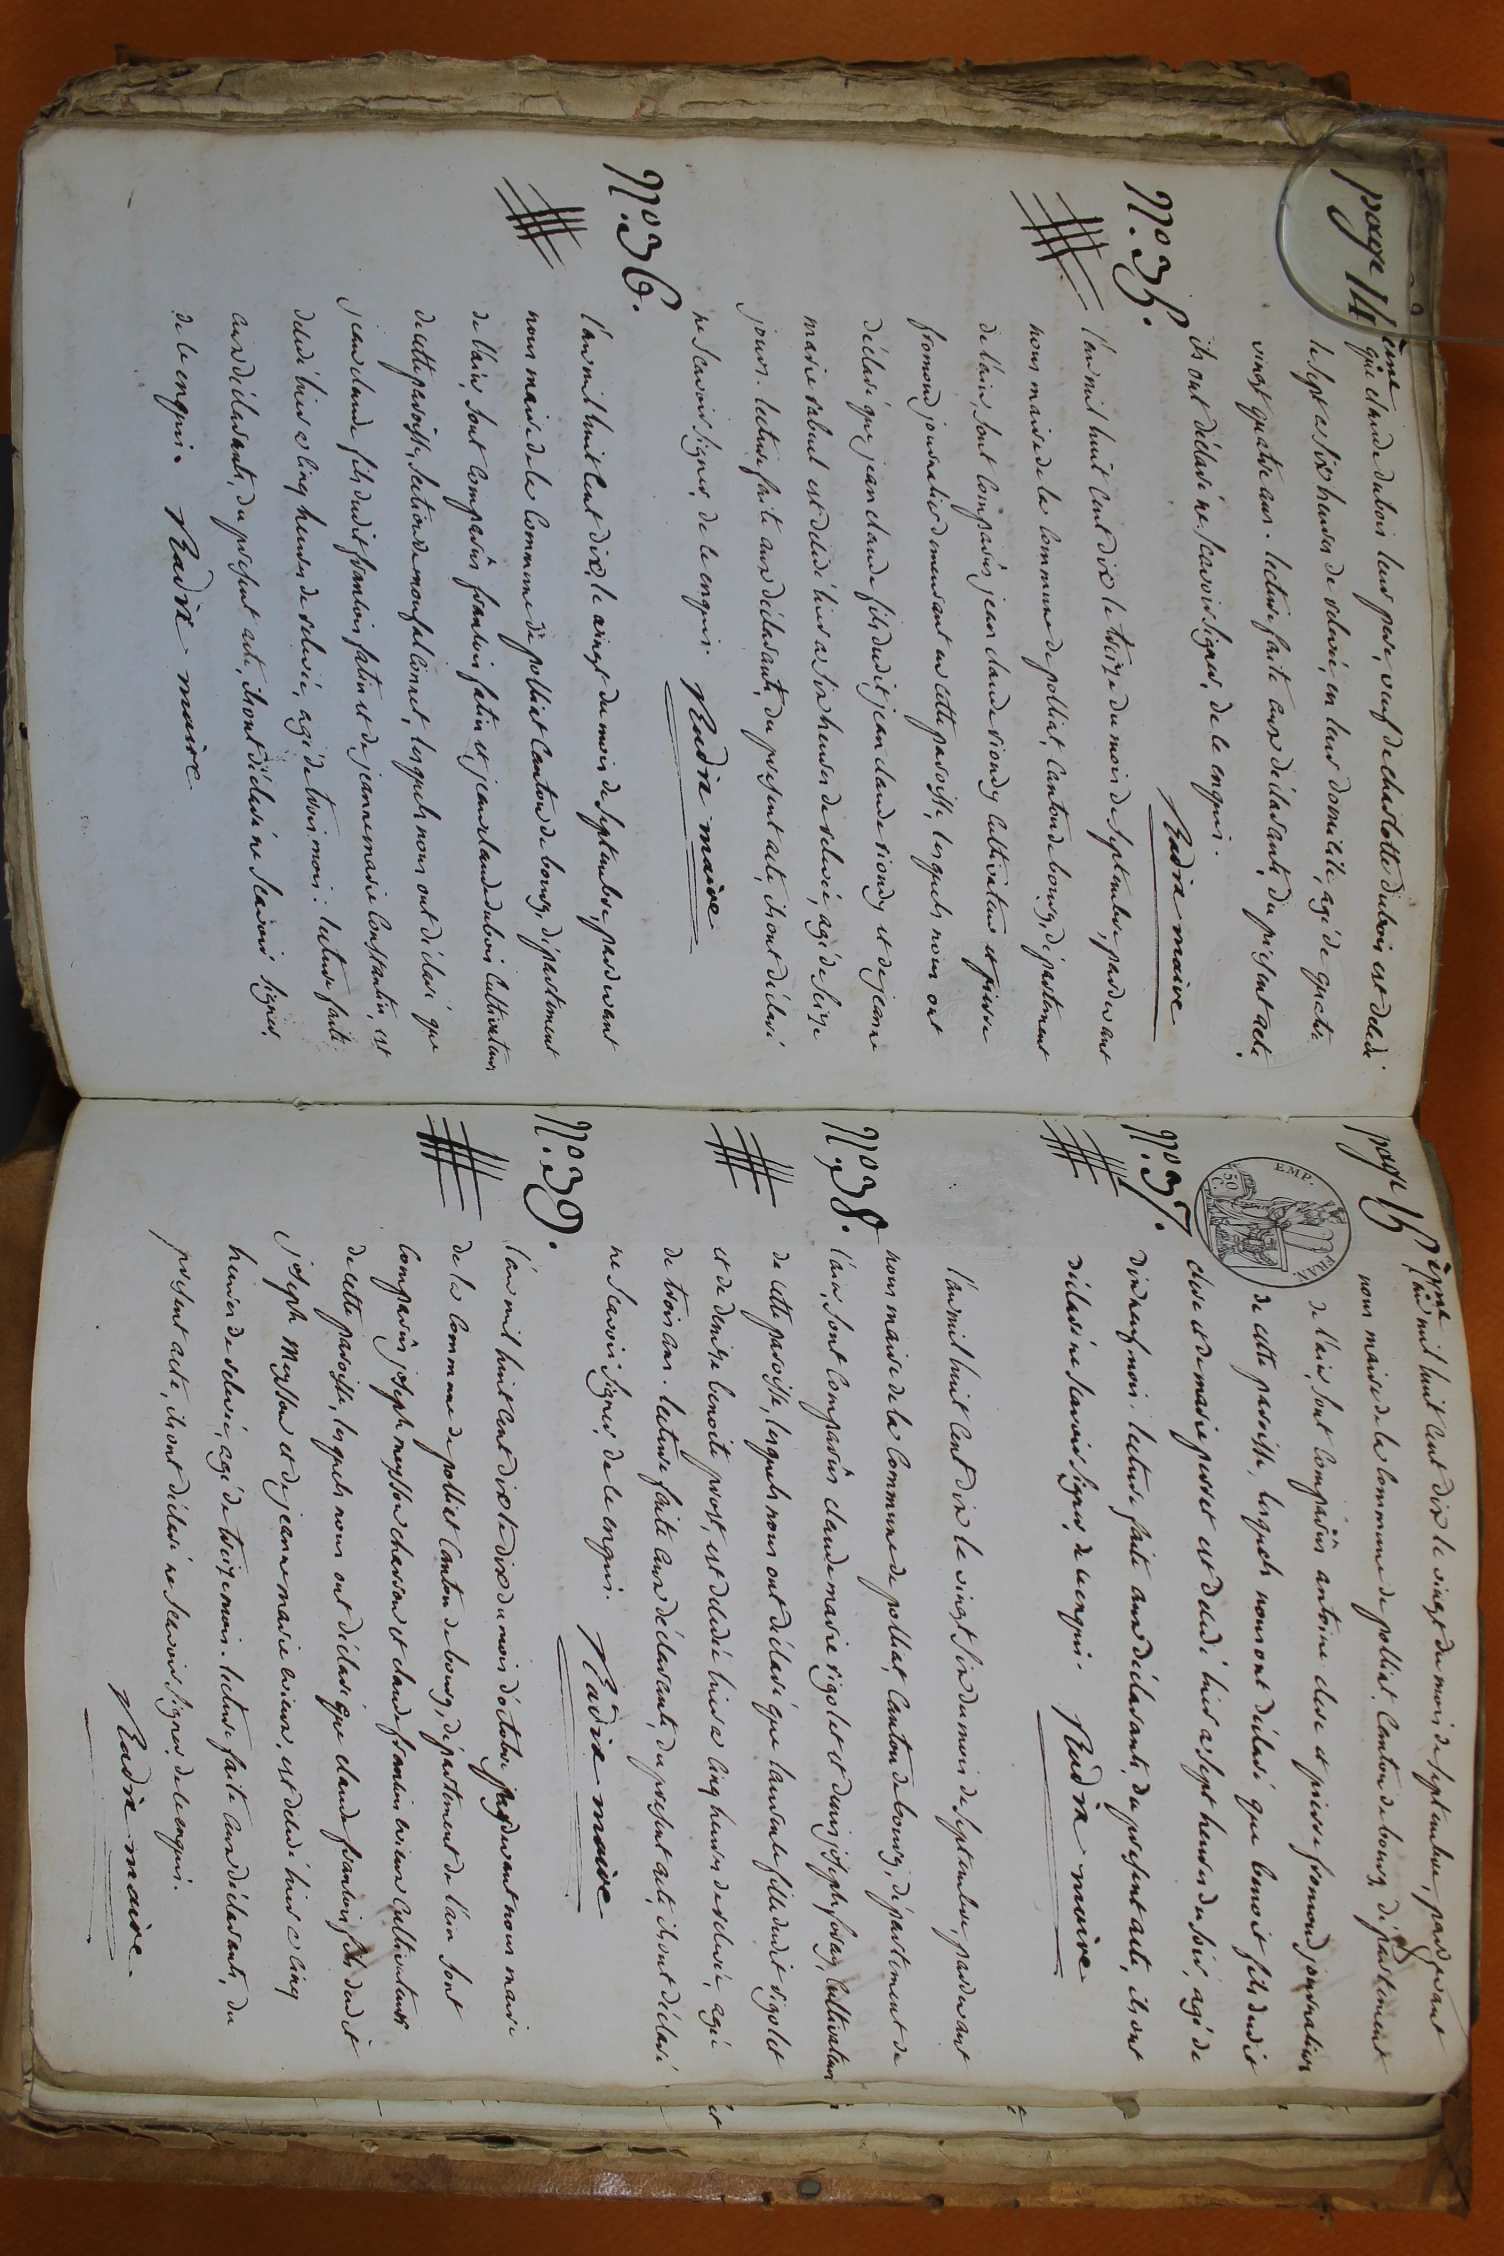 page 14ème
que claude dubois leur pere, veuf de charlotte dubois est dcdédé
le sept a six heures de relevée, en leur domicile, agé de quatre
vingt quatre ans. lecture faite aux déclarants, du présent acte
ils ont déclaré ne scavoir signer, de ce enquis.
Nadra maire
N° 35.
l'an mil huit cent dix le treize du mois de septembre, pardevant
nous maire de la commune de polliat, canton de bourg, département
de l'ain, sont comparûs jean claude rioudy cultivateur et pierre
fromond journalier demeurant en cette paroisse, lesquels nous ont
déclaré que jean claude fils dudit jean claude rioudy et de jeanne
marie rabuel est dcdédé hier a six heures de relevée, agé de seize
jours. lecture faite aux déclarants, du présent acte, ils ont déclaré
ne scavoir signer, de ce enquis. Nadra maire
N° 36.
l'an mil huit cent dix, le vingt du mois de septembre, pardevant
nous maire de la commune de polliat canton de bourg, département
de l'ain, sont comparûs francois fatin et jean claude dubois cultivateurs
de cette paroisse, section de monfalconnet, lesquels nous ont déclaré que
jean claude fils dudit francois fatin et de jeanne marie constantin, est
dcdédé hier a cinq heures de relevée, agé de trois mois. lecture faite
aux déclarants, du présent acte, ils ont déclaré ne scavoir signer,
de ce enquis. Nadra maire
page 15ème
N° 37.
EMP. FRAN.
50 C.
l'an mil huit cent dix le vingt du mois de septembre, pardevant
nous maire de la commune de polliat canton de bourg, département
de l'ain, sont comparûs antoine clere et pierre fromond journaliers
de cette paroisse, lesquels nous ont déclaré que benoit fils dudit
clere et de marie perret est dcdédé hier a sept heures du soir, agé de
dix neuf mois. lecture faite aux déclarants, du présent acte, ils ont
déclaré ne scavoir signer, de ce enquis. Nadra maire
N° 38.
l'an mil huit cent dix le vingt six du mois de septembre, pardevant
nous maire de la commune de polliat, canton de bourg, département de
l'ain, sont comparûs claude marie rigolet et denis joseph foray, cultivateurs
de cette paroisse, lesquels nous ont déclaré que laurente fille dudit rigolet
et de denise benoite prost, est dcdédée hier a cinq heures de relevée, agée
de trois ans. lecture faite aux déclarants, du présent acte, ils ont déclaré
ne scavoir signer, de ce enquis. Nadra maire
N° 39.
l'an mil huit cent dix le dix du mois d'octobre pardevant nous maire
de la commune de polliat canton de bourg, département de l'ain sont
comparûs joseph meysson charron et claude francois cultivateurs
de cette paroisse, lesquels nous ont déclaré que claude francois fils dudit
joseph meysson et de jeanne marie, est dcdédé hier a cinq
heures de relevée, agé de treize mois. lecture faite aux déclarants, du
présent acte, ils ont déclaré ne scavoir signer, de ce enquis.
Nadra maire.